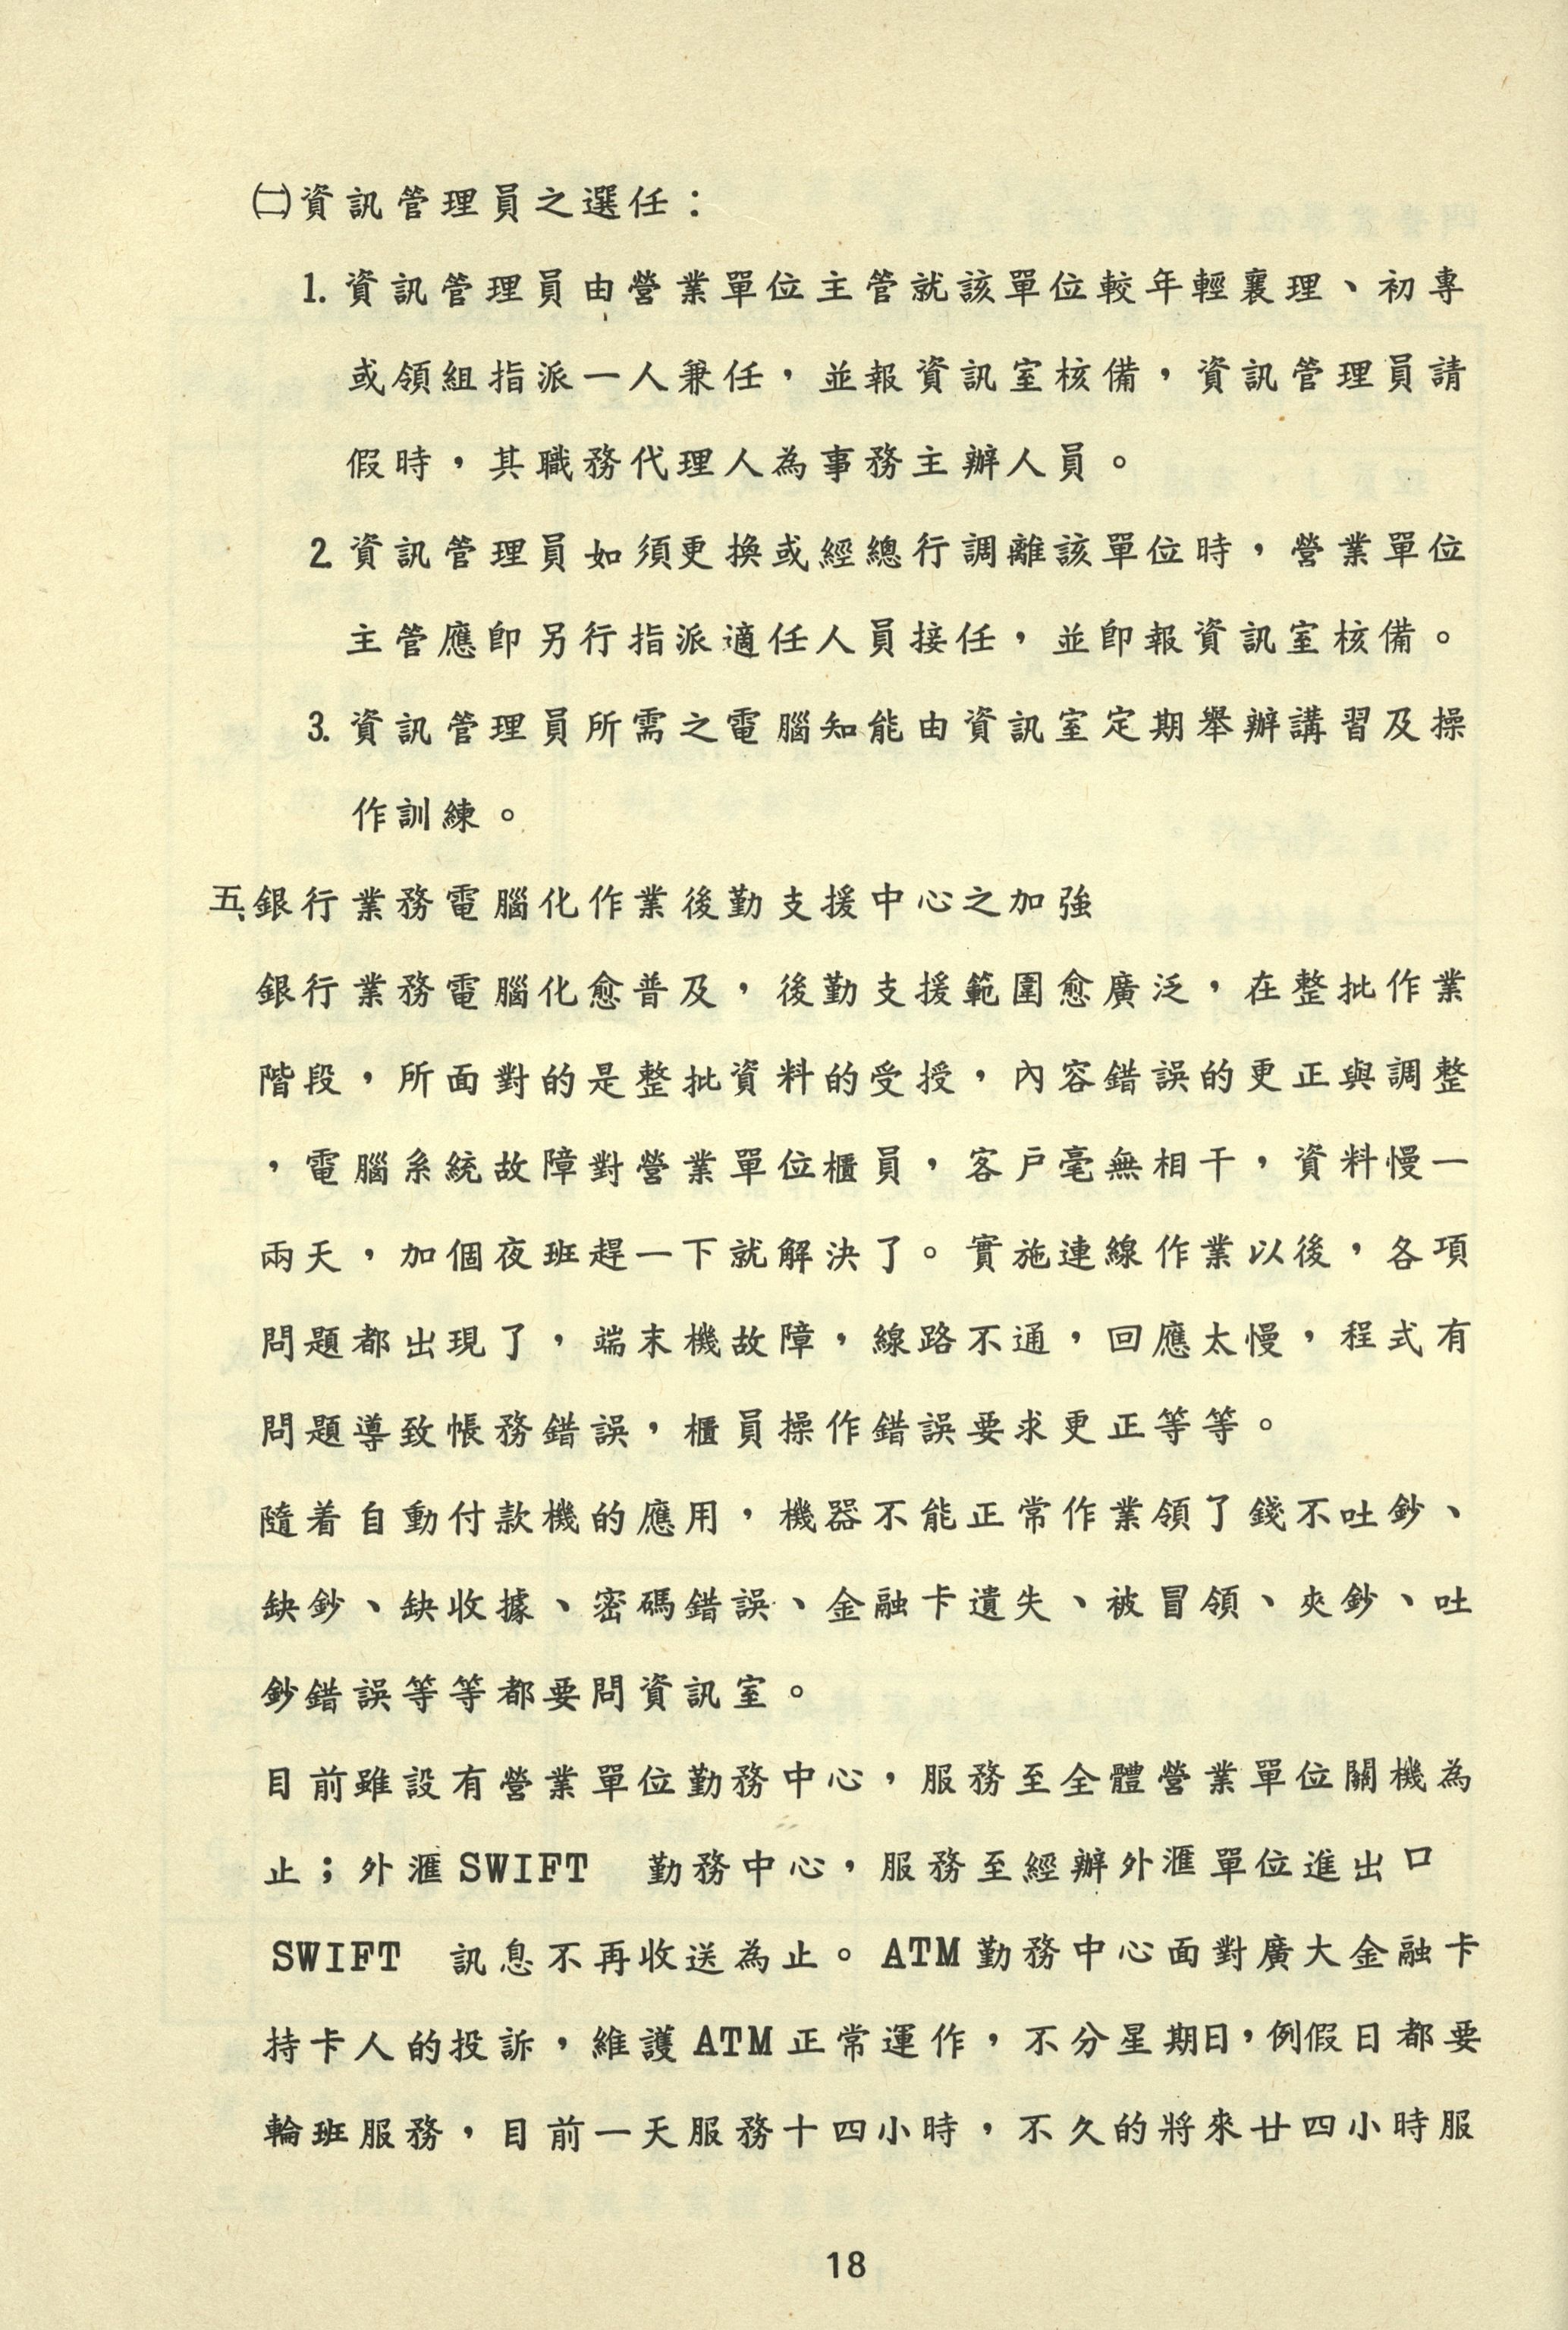 ㈡資訊管理員之選任：
1. 資訊管理員由營業單位主管就該單位較年輕襄理、初專
或領組指派一人兼任，並報資訊室核備，資訊管理員請
假時，其職務代理人為事務主辦人員。
2. 資訊管理員如須更換或經總行調離該單位時，營業單位
主管應即另行指派適任人員接任，並即報資訊室核備。
3. 資訊管理員所需之電腦知能由資訊室定期舉辦講習及操
作訓練。
五、銀行業務電腦化作業後勤支援中心之加強
銀行業務電腦化愈普及，後勤支援範圍愈廣泛，在整批作業
階段，所面對的是整批資料的受授，內容錯誤的更正與調整
，電腦系統故障對營業單位櫃員，客戶毫無相干，資料慢一
兩天，加個夜班趕一下就解決了。實施連線作業以後，各項
問題都出現了，端末機故障，線路不通，回應太慢，程式有
問題導致帳務錯誤，櫃員操作錯誤要求更正等等。
隨着自動付款機的應用，機器不能正常作業領了錢不吐鈔、
缺鈔、缺收據、密碼錯誤、金融卡遺失、被冒領、夾鈔、吐
鈔錯誤等等都要問資訊室。
目前雖設有營業單位勤務中心，服務至全體營業單位關機為
止；外滙SWIFT 勤務中心，服務至經辦外滙單位進出口
SWIFT 訊息不再收送為止。ATM勤務中心面對廣大金融卡
持卡人的投訴，維護ATM正常運作，不分星期日，例假日都要
輪班服務，目前一天服務十四小時，不久的將來廿四小時服
18